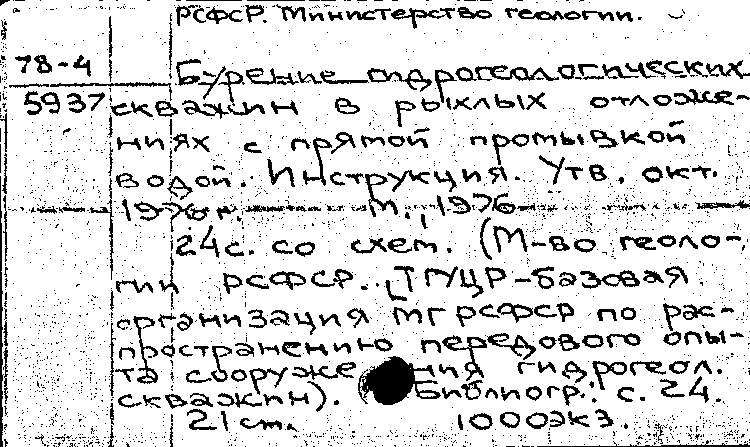 РСФСР. Министерство геологии.
78-4
Бурение гидрогеологических
5937 скважин в рыхлых отложе-
ниях с прямой промывкой
водой. Инструкция. Утв. окт.
1976 г. М., 1976
24с. со схем. (М-во геоло-
гии РСФСР. ТГУЦР-базовая
организация МГРСФСР по рас-
пространению передового опы-
та сооруже ния гидрогеол.
скважин). Библиогр.: с. 24.
21 см. 1000экз.